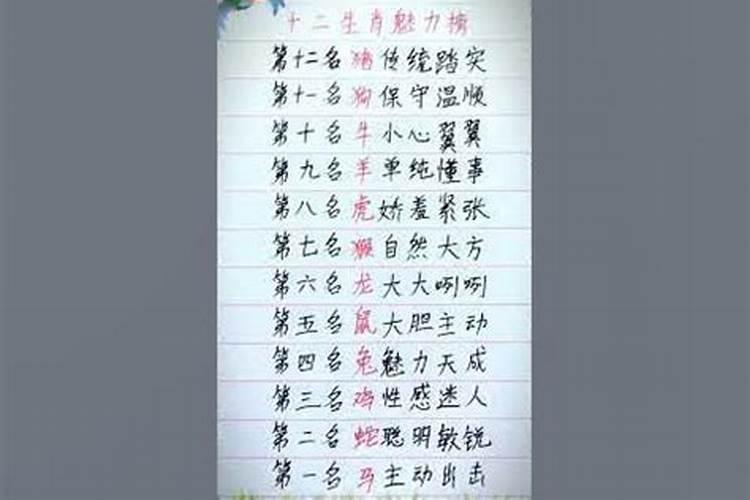 十二生肖魅力榜
第十二名猪传统踏实
第十一名狗保守温顺
第十名牛小心翼翼
第九名羊单纯懂事
第八名虎娇羞紧张
第七名猴自然大方
第六名龙大大咧咧
第五名鼠大胆主动
第四名兔魅力天成
第三名鸡性感迷人
第二名蛇聪明敏锐
第一名马主动出击